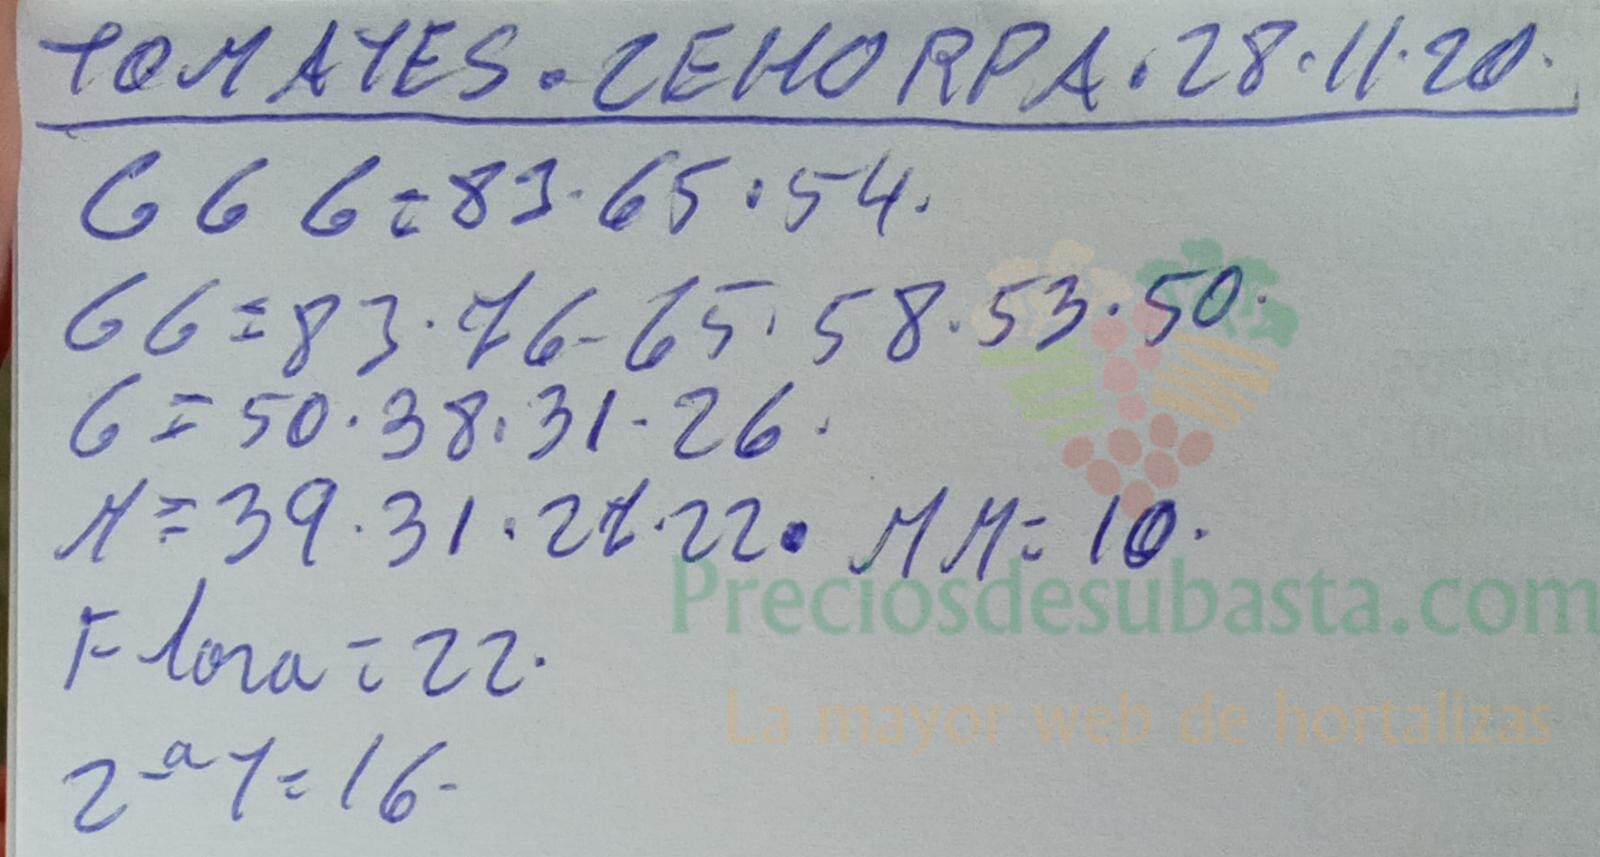 TOMATES. ZEHORPA. 28.11.20.
GGG=83.65.54.
GG=83.76-65.58.53.50.
G=50.38.31-26.
M=39.31.27.22. MM=10.
Preciosdesubasta.com
Flora=22.
La mayor web de hortalizas
2ª T=16-